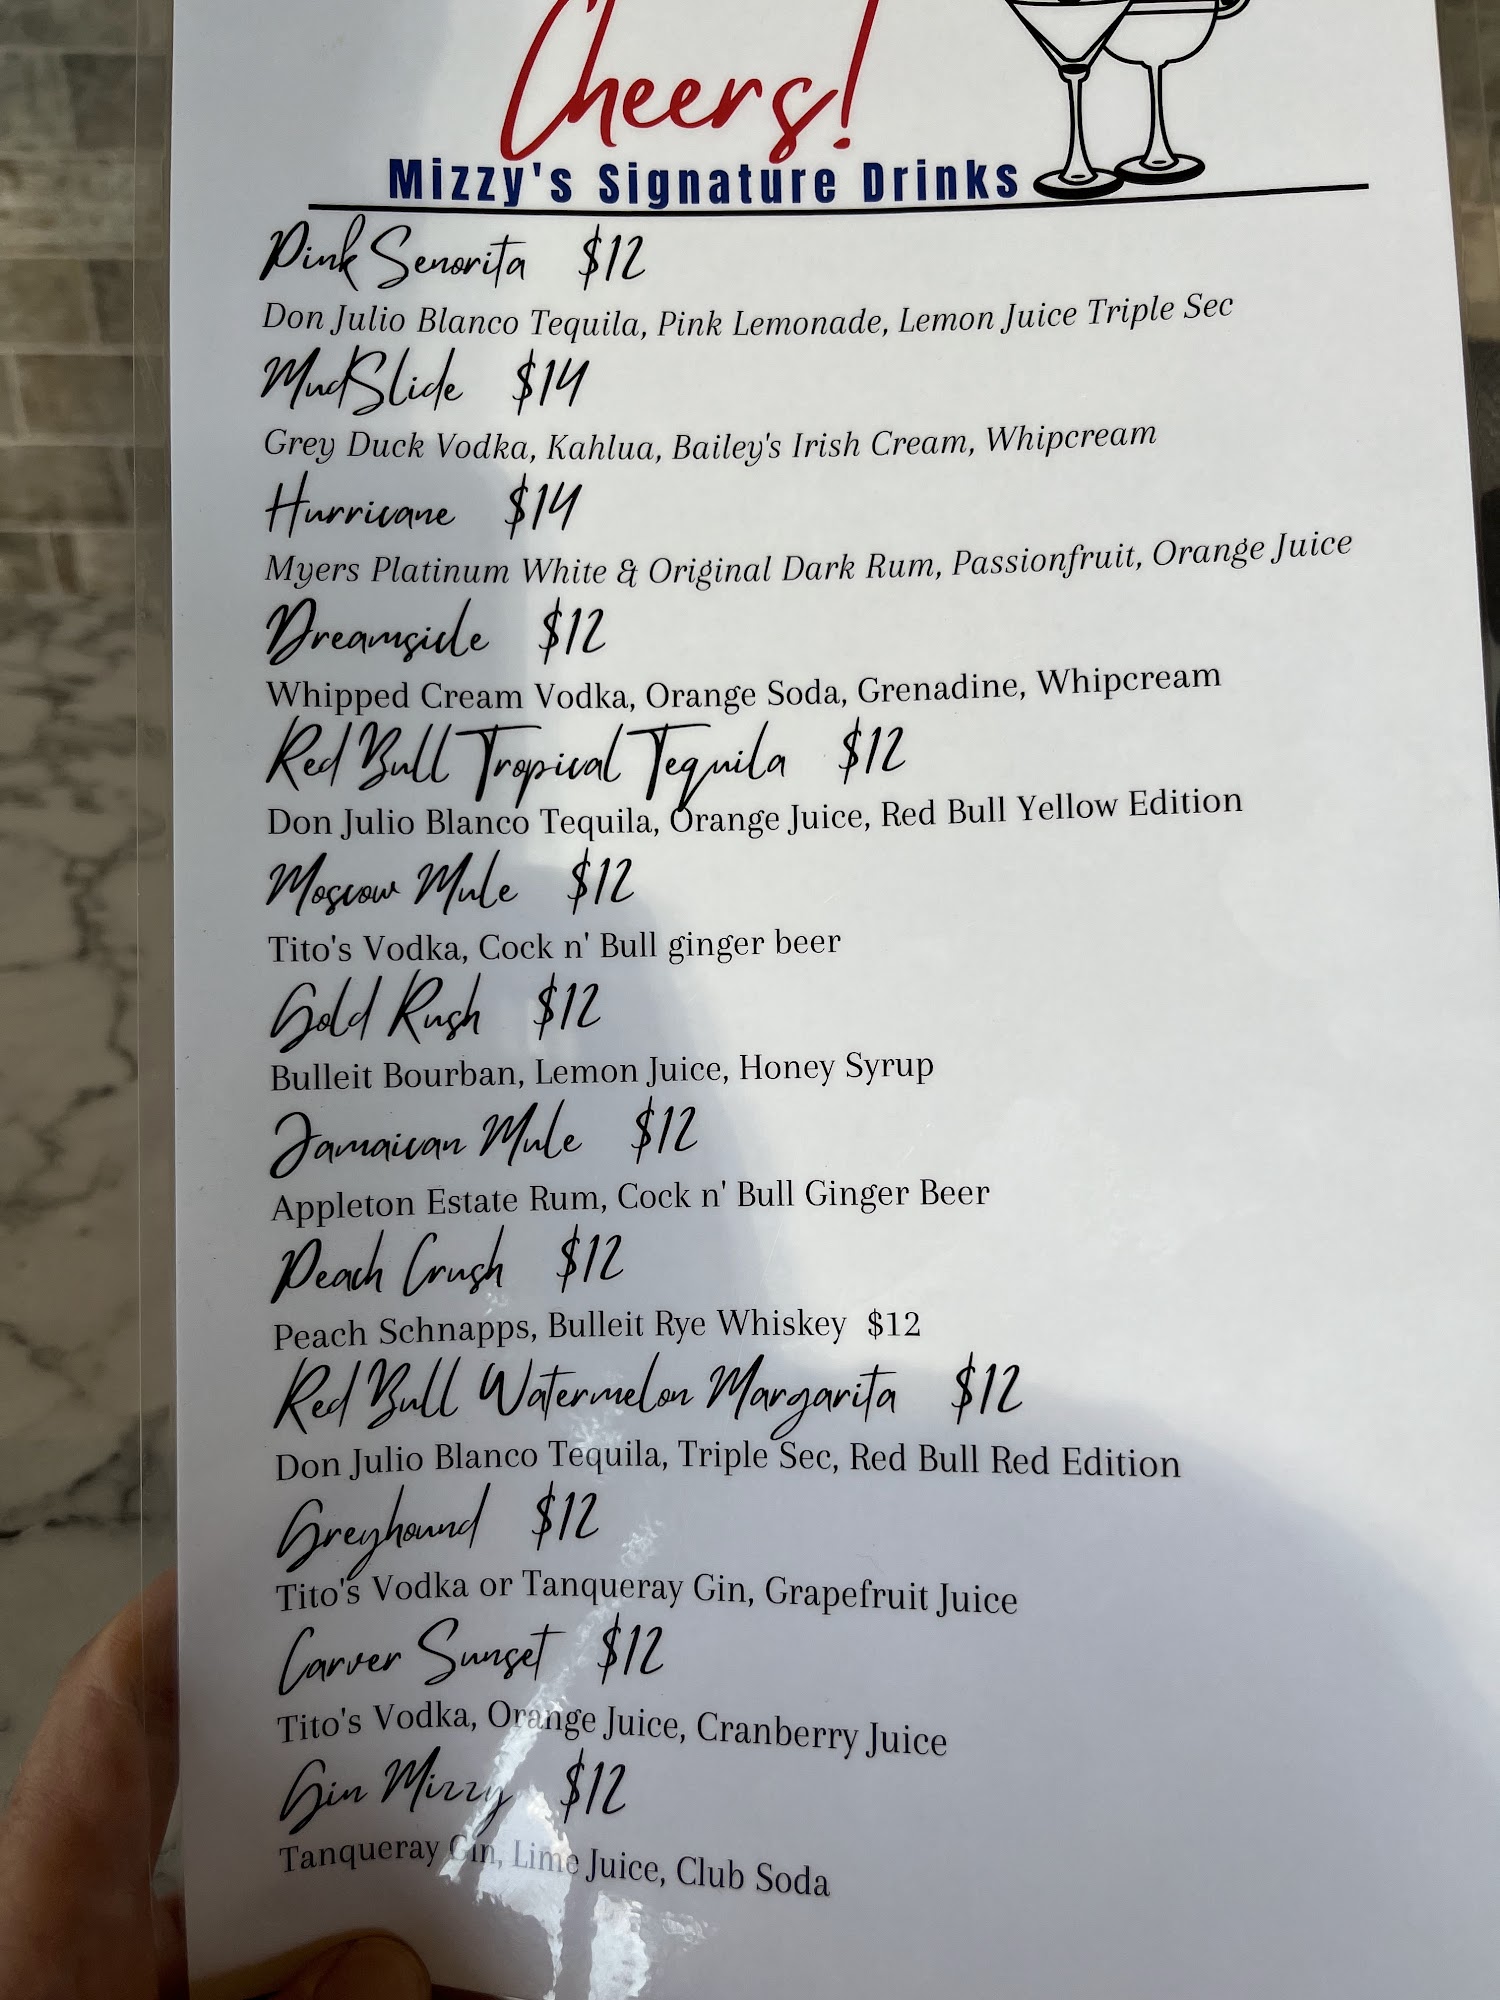 Cheers!
Mizzy's Signature Drinks
Pink Senorita $12
Don Julio Blanco Tequila, Pink Lemonade, Lemon Juice Triple Sec
MudSlide $14
Grey Duck Vodka, Kahlua, Bailey's Irish Cream, Whipcream
Hurricane $14
Myers Platinum White & Original Dark Rum, Passionfruit, Orange Juice
Dreamsicle $12
Whipped Cream Vodka, Orange Soda, Grenadine, Whipcream
Red Bull Tropical Tequila $12
Don Julio Blanco Tequila, Orange Juice, Red Bull Yellow Edition
Moscow Mule $12
Tito's Vodka, Cock n' Bull ginger beer
Gold Rush $12
Bulleit Bourban, Lemon Juice, Honey Syrup
Jamaican Mule $12
Appleton Estate Rum, Cock n' Bull Ginger Beer
Peach Crush $12
Peach Schnapps, Bulleit Rye Whiskey $12
Red Bull Watermelon Margarita $12
Don Julio Blanco Tequila, Triple Sec, Red Bull Red Edition
Greyhound $12
Tito's Vodka or Tanqueray Gin, Grapefruit Juice
Carver Sunset $12
Tito's Vodka, Orange Juice, Cranberry Juice
Gin Mizzy $12
Tanqueray Gin, Lime Juice, Club Soda